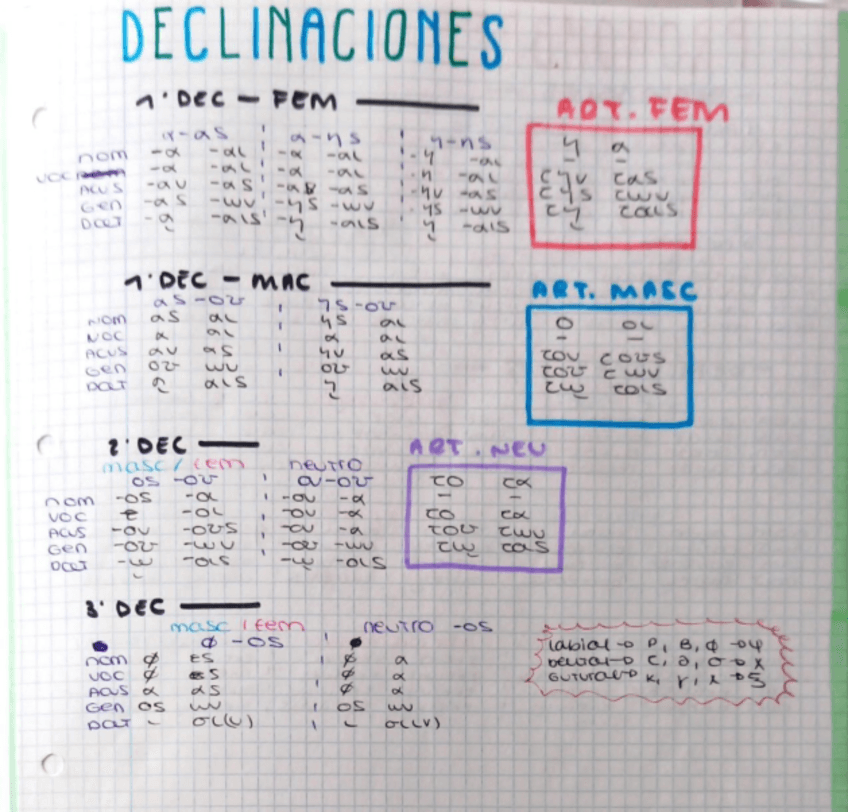 DECLINACIONES
1ª DEC - FEM
ART. FEM
α-ας α-ης η-ης
nom -α -αι -α -αι -η -αι
voc -α -αι -α -αι -η -αι
Acus -αν -ας -αν -ας -ην -ας
Gen -ας -ων -ης -ων -ης -ων
Dat -ᾳ -αις -ῃ -αις -ῃ -αις
η α
- -
την τας
της των
τῃ ταις
1ª DEC - MAC
ART. MASC
ας -ου ης -ου
Nom ας αι ης αι
Voc α αι α αι
Acus αν ας ην ας
Gen ου ων ου ων
Dat ᾳ αις ῃ αις
ο οι
- -
τον τους
του των
τῳ τοις
2ª DEC
ART. NEU
masc / fem neutro
ος -ου ο-ου
nom -ος -α -ον -α
voc -οι -ον -α
Acus -ον -ους -ον -α
Gen -ου -ων -ου -ων
Dat -ῳ -οις -ῳ -οις
το τα
- -
το τα
του των
τῳ τοις
3ª DEC
masc / fem neutro -ος
φ -ος
nom φ ες φ α
voc φ ες φ α
Acus α ας φ α
Gen ος ων ος ων
Dat ι σι(ν) ι σι(ν)
labial → π, β, φ → ψ
κ, γ, χ → ξ